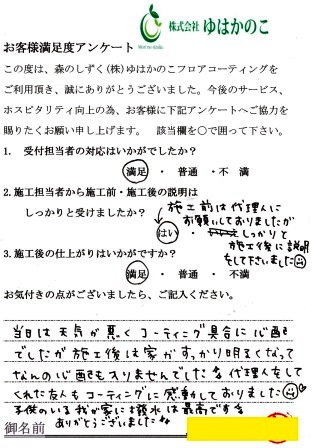 株式会社 ゆはかのこ
Mori no shizuku
お客様満足度アンケート
この度は、森のしずく(株)ゆはかのこフロアコーティングを
ご利用頂き、誠にありがとうございました。今後のサービス、
ホスピタリティ向上の為、お客様に下記アンケートへご協力を
賜りたくお願い申し上げます。 該当欄を○で囲って下さい。
1. 受付担当者の対応はいかがでしたか?
満足 ・ 普通 ・ 不満
2. 施工担当者から施工前・施工後の説明は
しっかりと受けましたか?
施工前は代理人に
お願いしておりましたが
はい ・
しっかりと
施工後に説明
をして下さいました
3. 施工後の仕上がりはいかがですか?
満足 ・ 普通 ・ 不満
お気付きの点がございましたら、ご記入ください。
当日は天気が悪くコーティング具合に心配
でしたが施工後は家がすっかり明るくなって
なんの心配も入りませんでした 代理人をして
くれた友人もコーティングに感動しておりました
子供のいる我が家に撥水は最高です
ありがとうございました
御名前